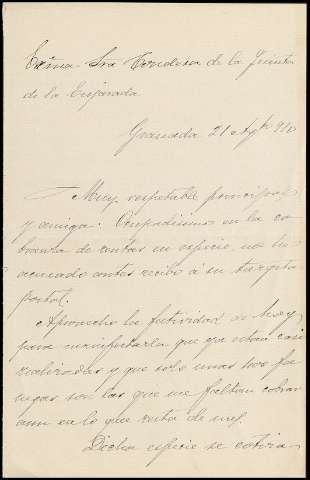 Exma. Sra Condesa de la Quinta
de la Enjarada
Granada 21 Agto 910
Muy respetable principal
y amiga: Ocupadisimo en la co
branza de rentas en especie, no he
acusado antes recibo á su targeta
postal.
Aprovecho la festividad de hoy
para manifestarla que ya estan casi
realizadas y que solo unas 400 fa
negas son las que me faltan cobrar
aun en lo que resta de mes.
Dicha especie se cotiza